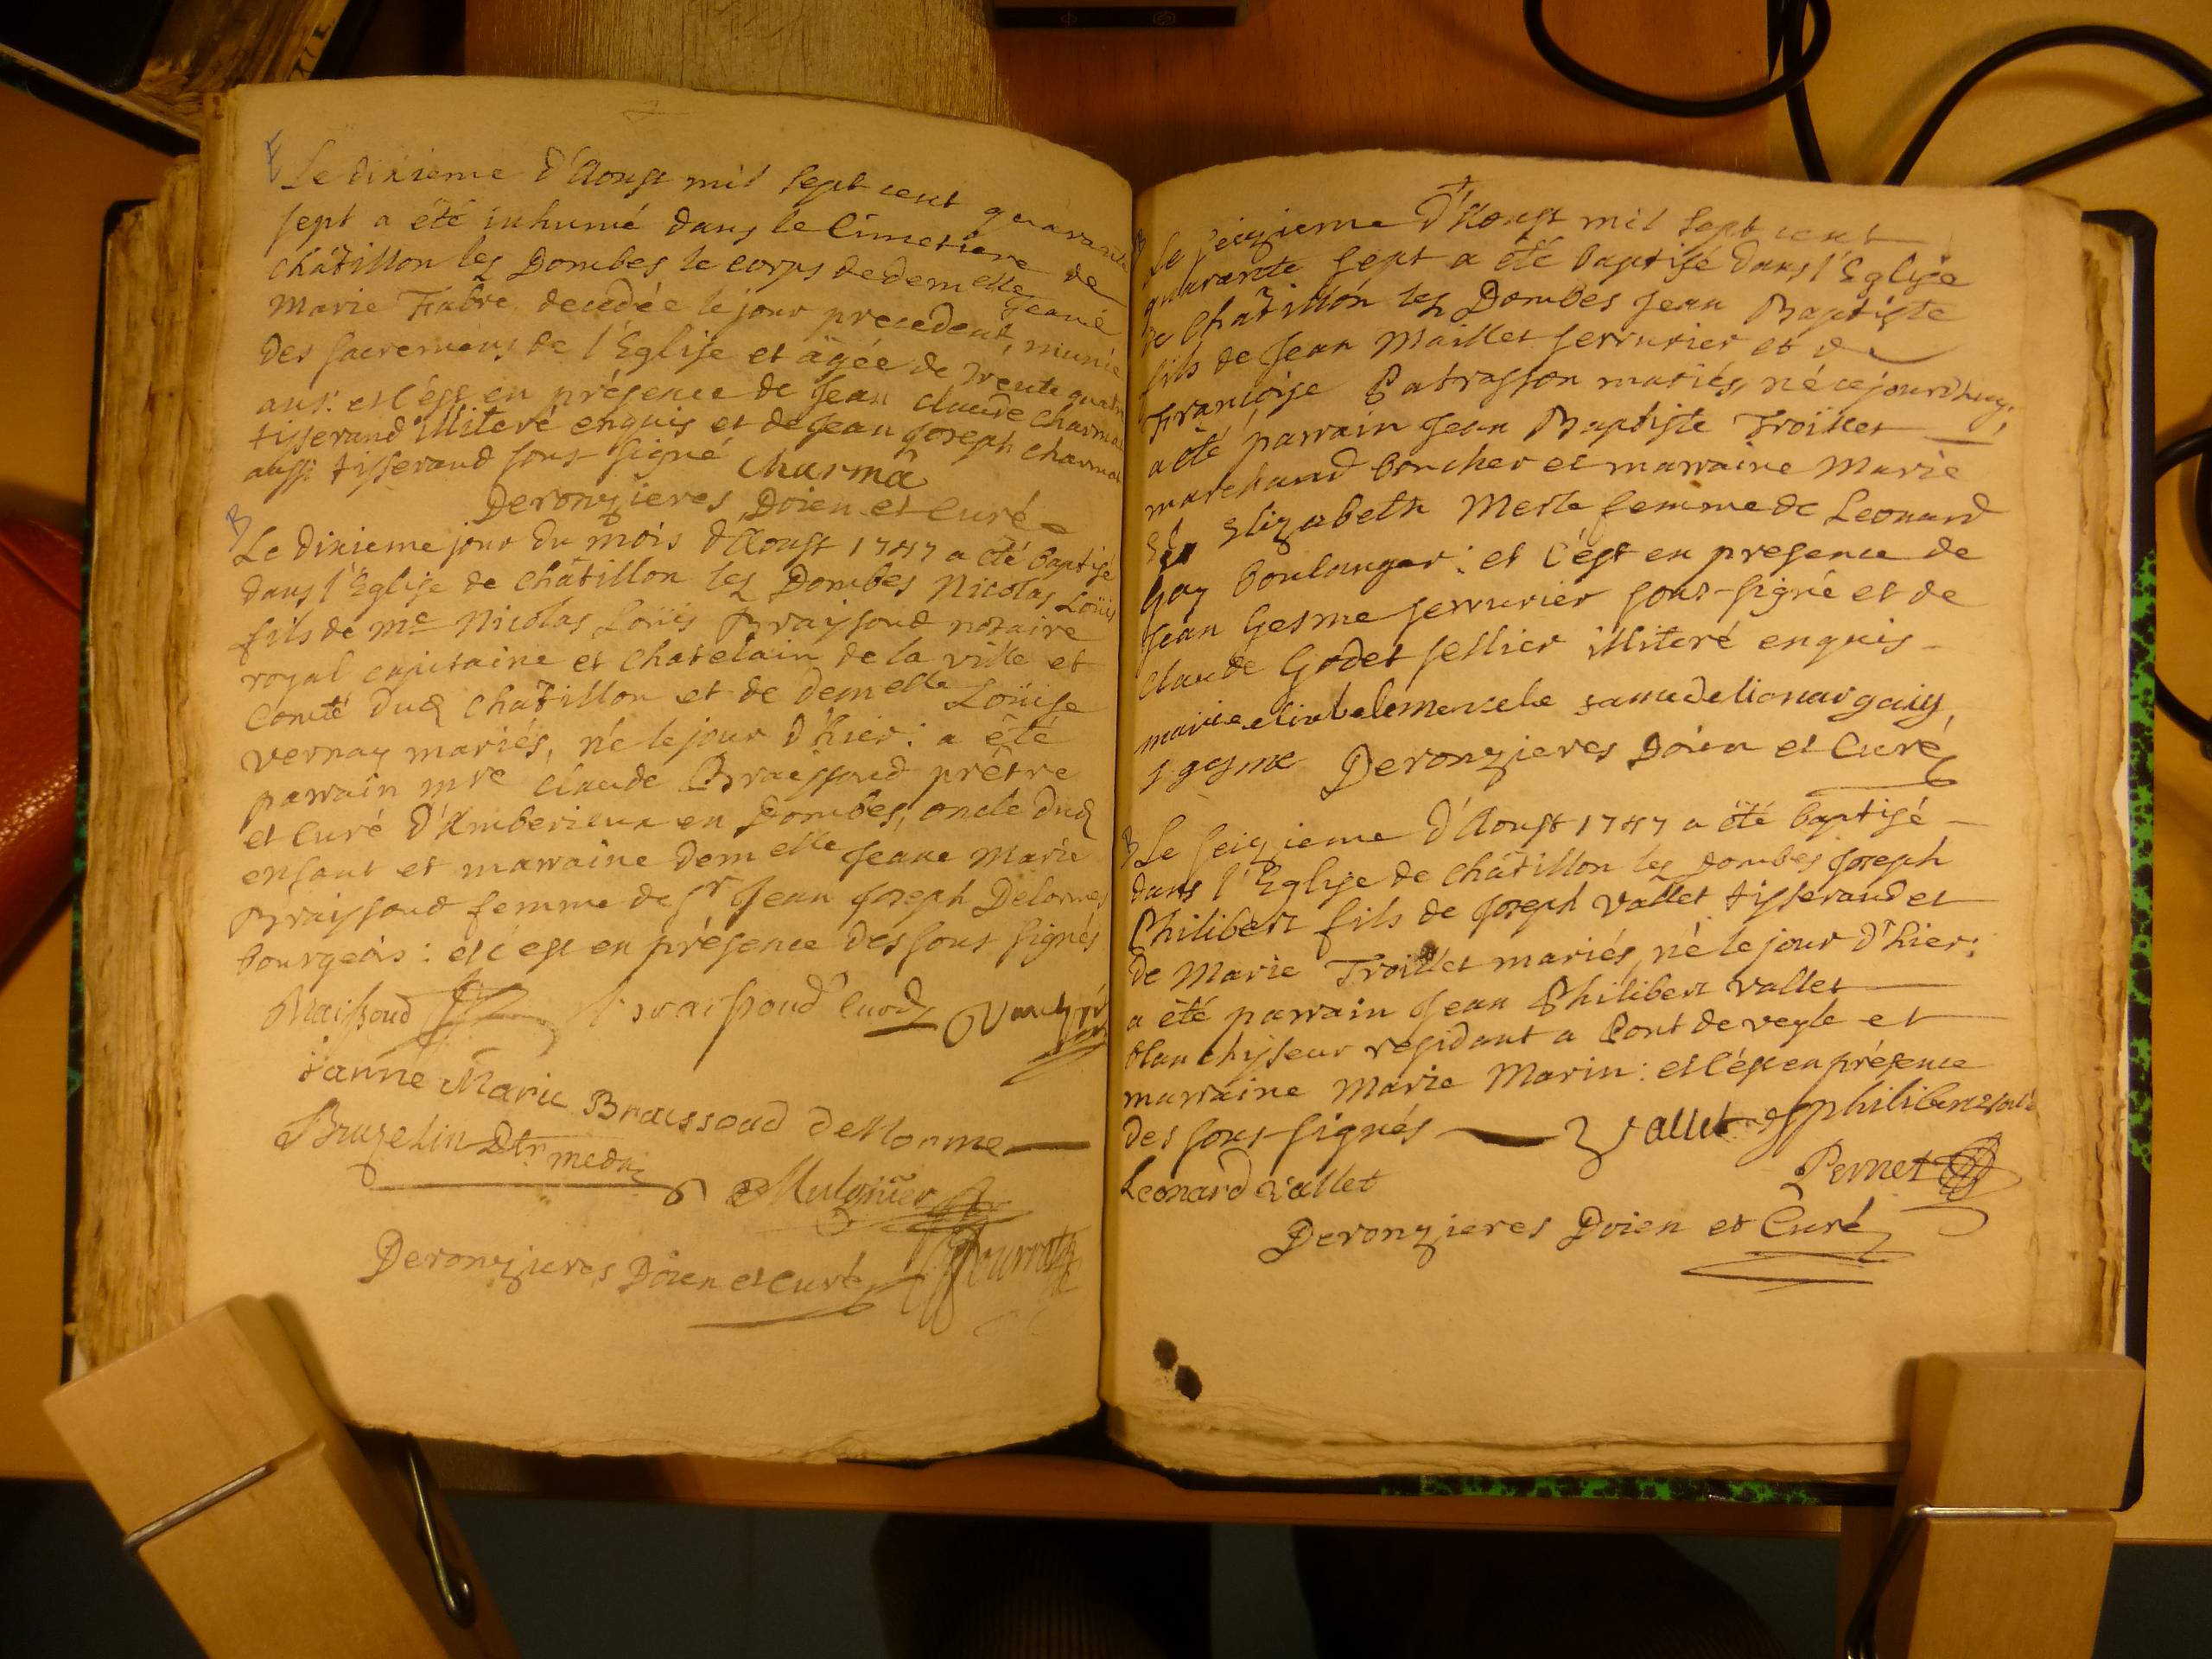 Le dixieme d'Aoust mil sept cent quarante
sept a été inhumé dans le Cimetiere de
châtillon les Dombes le corps de demelle Jeane
Marie Fabre decedée le jour precedent, munie
des sacremens de l'Eglise et agée de trente quatre
ans: et c'est en présence de Jean claude Charmat
tisserand illiteré enquis et de Jean Joseph Charmat
aussi tisserand sous signé Charma
Deronzieres Doien et Curé
B
Le dixieme jour du mois d'Aoust 1747 a été baptisé
dans l'Eglise de châtillon les Dombes Nicolas Loüis
fils de me Nicolas Loüis Braissoud notaire
royal capitaine et chatelain de la ville et
Comté dud châtillon et de demelle Loüise
Vernay mariés, né le jour d'hier: a été
parrain mre Claude Braissoud prêtre
et Curé d'Amberieux en Dombes, oncle dud
enfant et marraine demelle Jeane Marie
Braissoud femme de sr Jean Joseph Delorme
bourgeois: et c'est en présence des sous signés
Braissoud Braissoud Curé
Janne Marie Braissoud dellorme
Bruzelin Dtr medn
Mulgnier
Deronzieres Doien et Curé
B
Le seizieme d'Aoust mil sept cent
quarante sept a été baptisé dans l'Eglise
de châtillon les Dombes Jean Baptiste
fils de Jean Maillet serrurier et de
Françoise Patrasson mariés, né cejourdhuy;
a été parrain Jean Baptiste Troillet
marchand boucher et marraine Marie
Elizabeth Merle femme de Leonard
Gay boulanger: et c'est en presence de
Jean Gesme serrurier sous-signé et de
Claude Godet sellier illiteré enquis
marie
J gesme Deronzieres Doien et Curé
B
Le seizieme d'Aoust 1747 a été baptisé
dans l'Eglise de châtillon les Dombes Joseph
Philibert fils de Joseph Vallet tisserand et
de Marie Troillet mariés, né le jour d'hier:
a été parrain Jean Philibert Vallet
blanchisseur residant a Pont de veyle et
marraine Marie Marin: et c'est en présence
des sous-signés Vallet philibert
Pernet
Leonard vallet
Deronzieres Doien et Curé